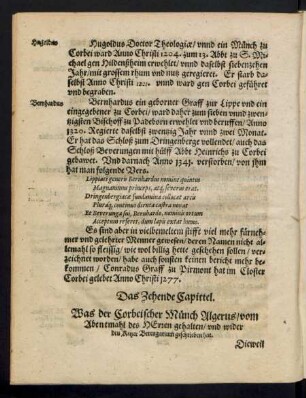 Hugoldus
Hugoldus Doctor Theologiæ/ vnnd ein Münch zu
Corbei ward Anno Christi 1204. zum 13. Abbt zu S. Mi-
chael gen Hildenßheim erwehlet/ vnnd daselbst siebenzehen
Jahr/mit grossem rhum vnd nutz geregieret. Er starb da-
selbst Anno Christi vnnd ward gen Corbei geführet
vnd begraben.
Bernhardus
Bernhardus ein geborner Graff zur Lippe vnd ein
eingegebener zu Corbei/ ward daher zum sieben vnnd zwen-
tzigsten Bischoff zu Padeborn erwehlet vnd beruffen/ Anno
Christi 1320. Regierte daselbst zwentzig Jahr vnnd zwei Monat.
Er hat das Schloß zum Dringenberge vollendet/ auch das
Schloß Beverungen mit hülff Abbt Heinrichs zu Corbei
gebawet. Vnd darnach Anno 1341. verstorben/ von jhm
hat man folgende Vers.
Lippiaci generis Bernhardus nomine quintus
Magnanimus princeps, atq́; severus erat.
Dringenbergiacæ fundamina collocat arcis
Plura q́; continuò structa nova
Et Beverunga sui, Bernharde, nominis ortum
Acceptum referet, dum lapis extat humo.
Es sind aber in vielbemeltem stifft viel mehr fürneh-
mer vnd gelehrter Männer gewesen/ deren Namen nicht al-
lemahl so fleissig/ wie wol billig hette geschehen sollen/ ver-
zeichnet worden/ habe auch sonsten keinen bericht mehr be-
kommen/ Conradus Graff zu Pirmont hat im Closter
Corbei gelebet Anno Christi 1277.
Das Zehende Capittel.
Was der Corbeischer Münch Algerus/ vom
Abentmahl des HErren gehalten/ vnd wider
den Ketzer Berengarium geschrieben hat.
Dieweil